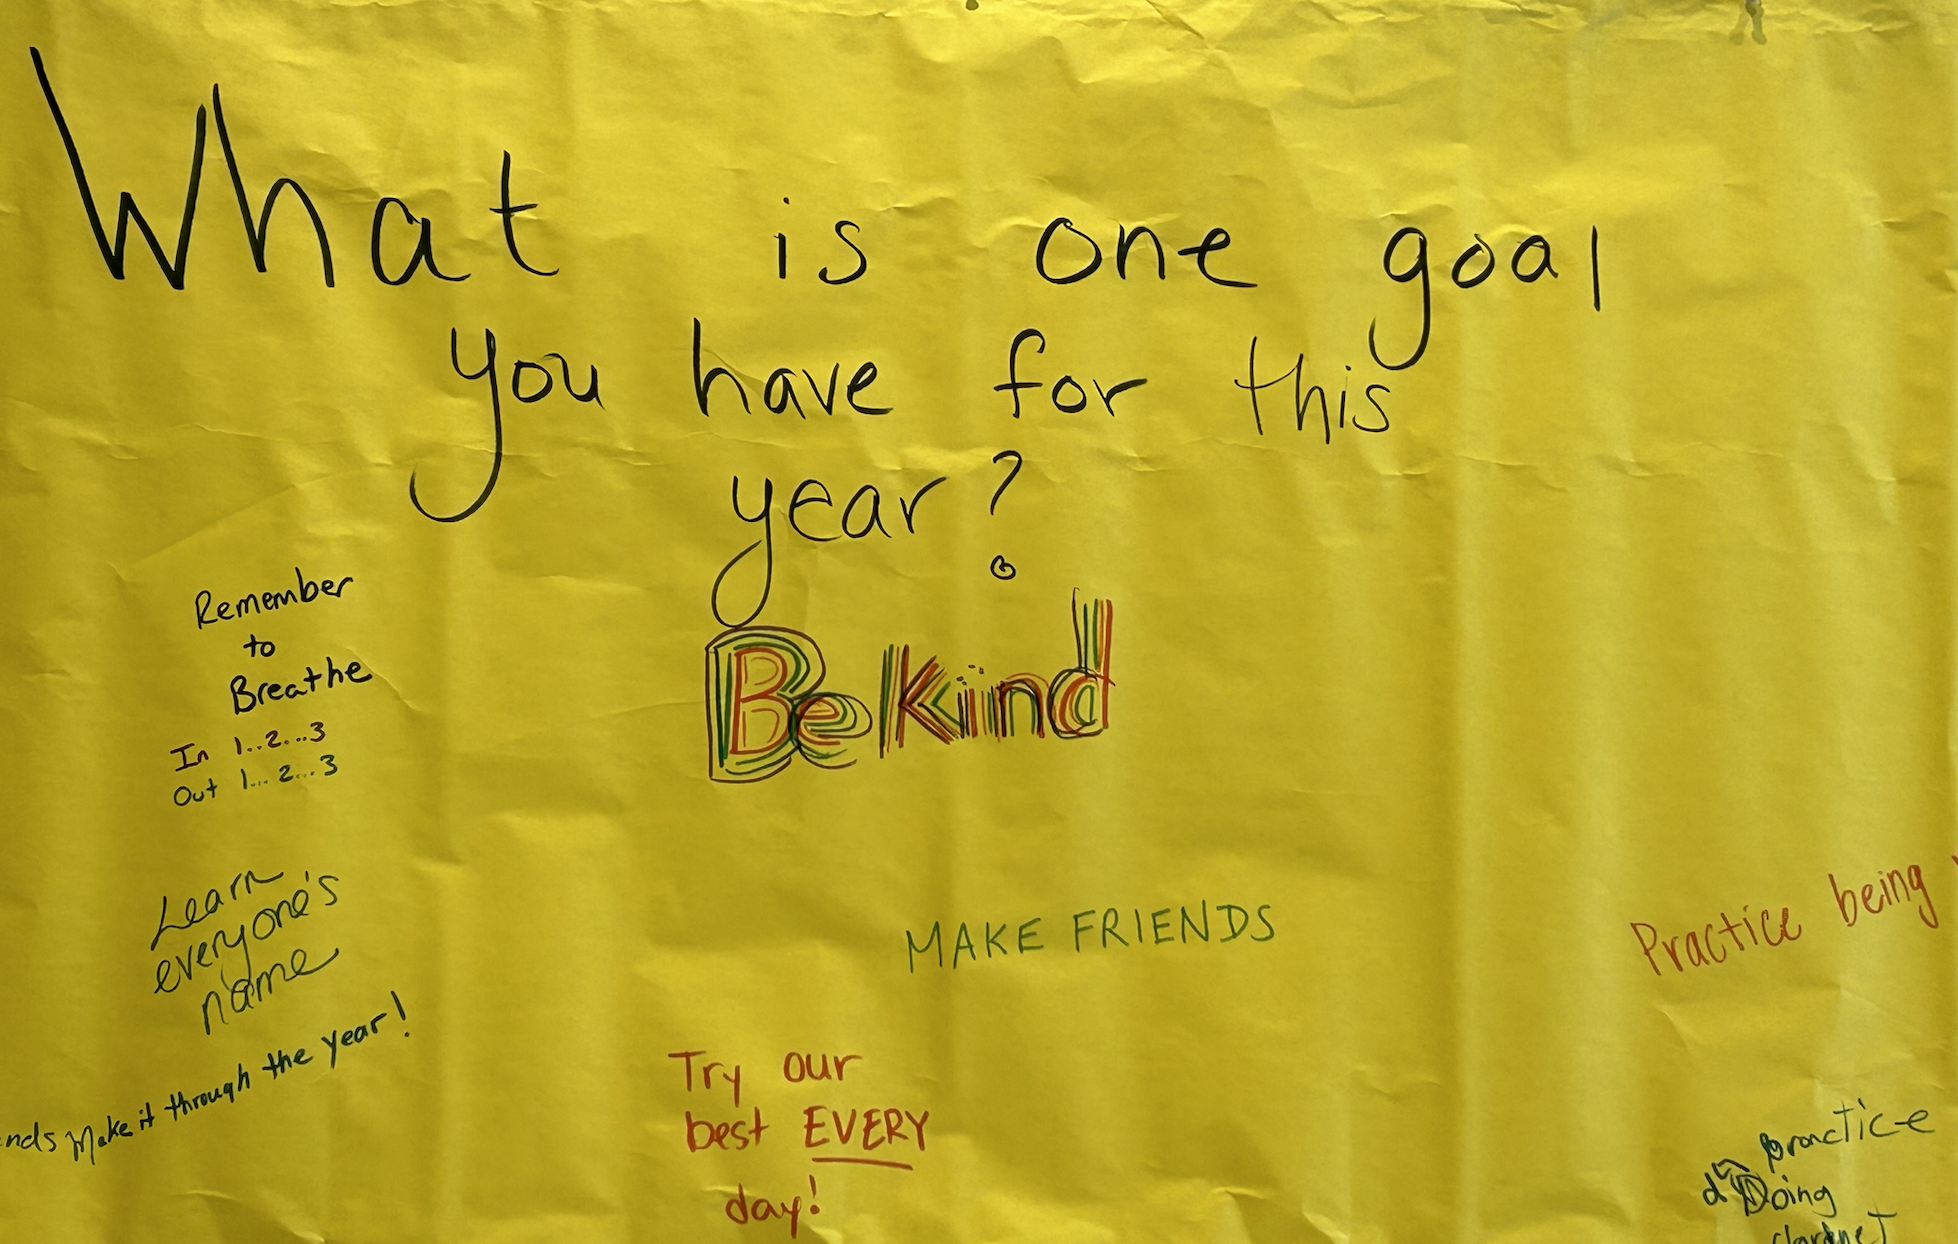 What is one goal
you have for this
year?
Be Kind
Remember
to
Breathe
In 1..2...3
Out 1... 2...3
Learn
everyone's
name
nds Make it through the year!
MAKE FRIENDS
Try our
best EVERY
day!
Practice being
practice
doing
clarinet